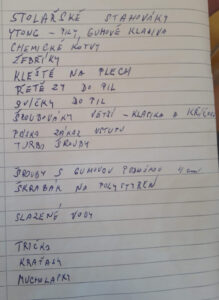 STOLAŘSKÉ STAHOVÁKY
YTONG - PILY, GUMOVÉ KLADIVO
CHEMICKÉ KOTVY
ŽEBŘÍKY
KLEŠTĚ NA PLECH
ŘETĚZY DO PIL
SVÍČKY DO PIL
ŠROUBOVÁKY VĚTŠÍ - KLASIKA A KŘÍŽOVÉ
PÁSKA ZÁKAZ VSTUPU
TURBO ŠROUBY
ŠROUBY S GUMOVOU PODLOŽKOU
ŠKRABÁK NA POLYSTYRÉN
SLAZENÉ VODY
TRIČKO
KRAŤASY
MUCHOLAPKY